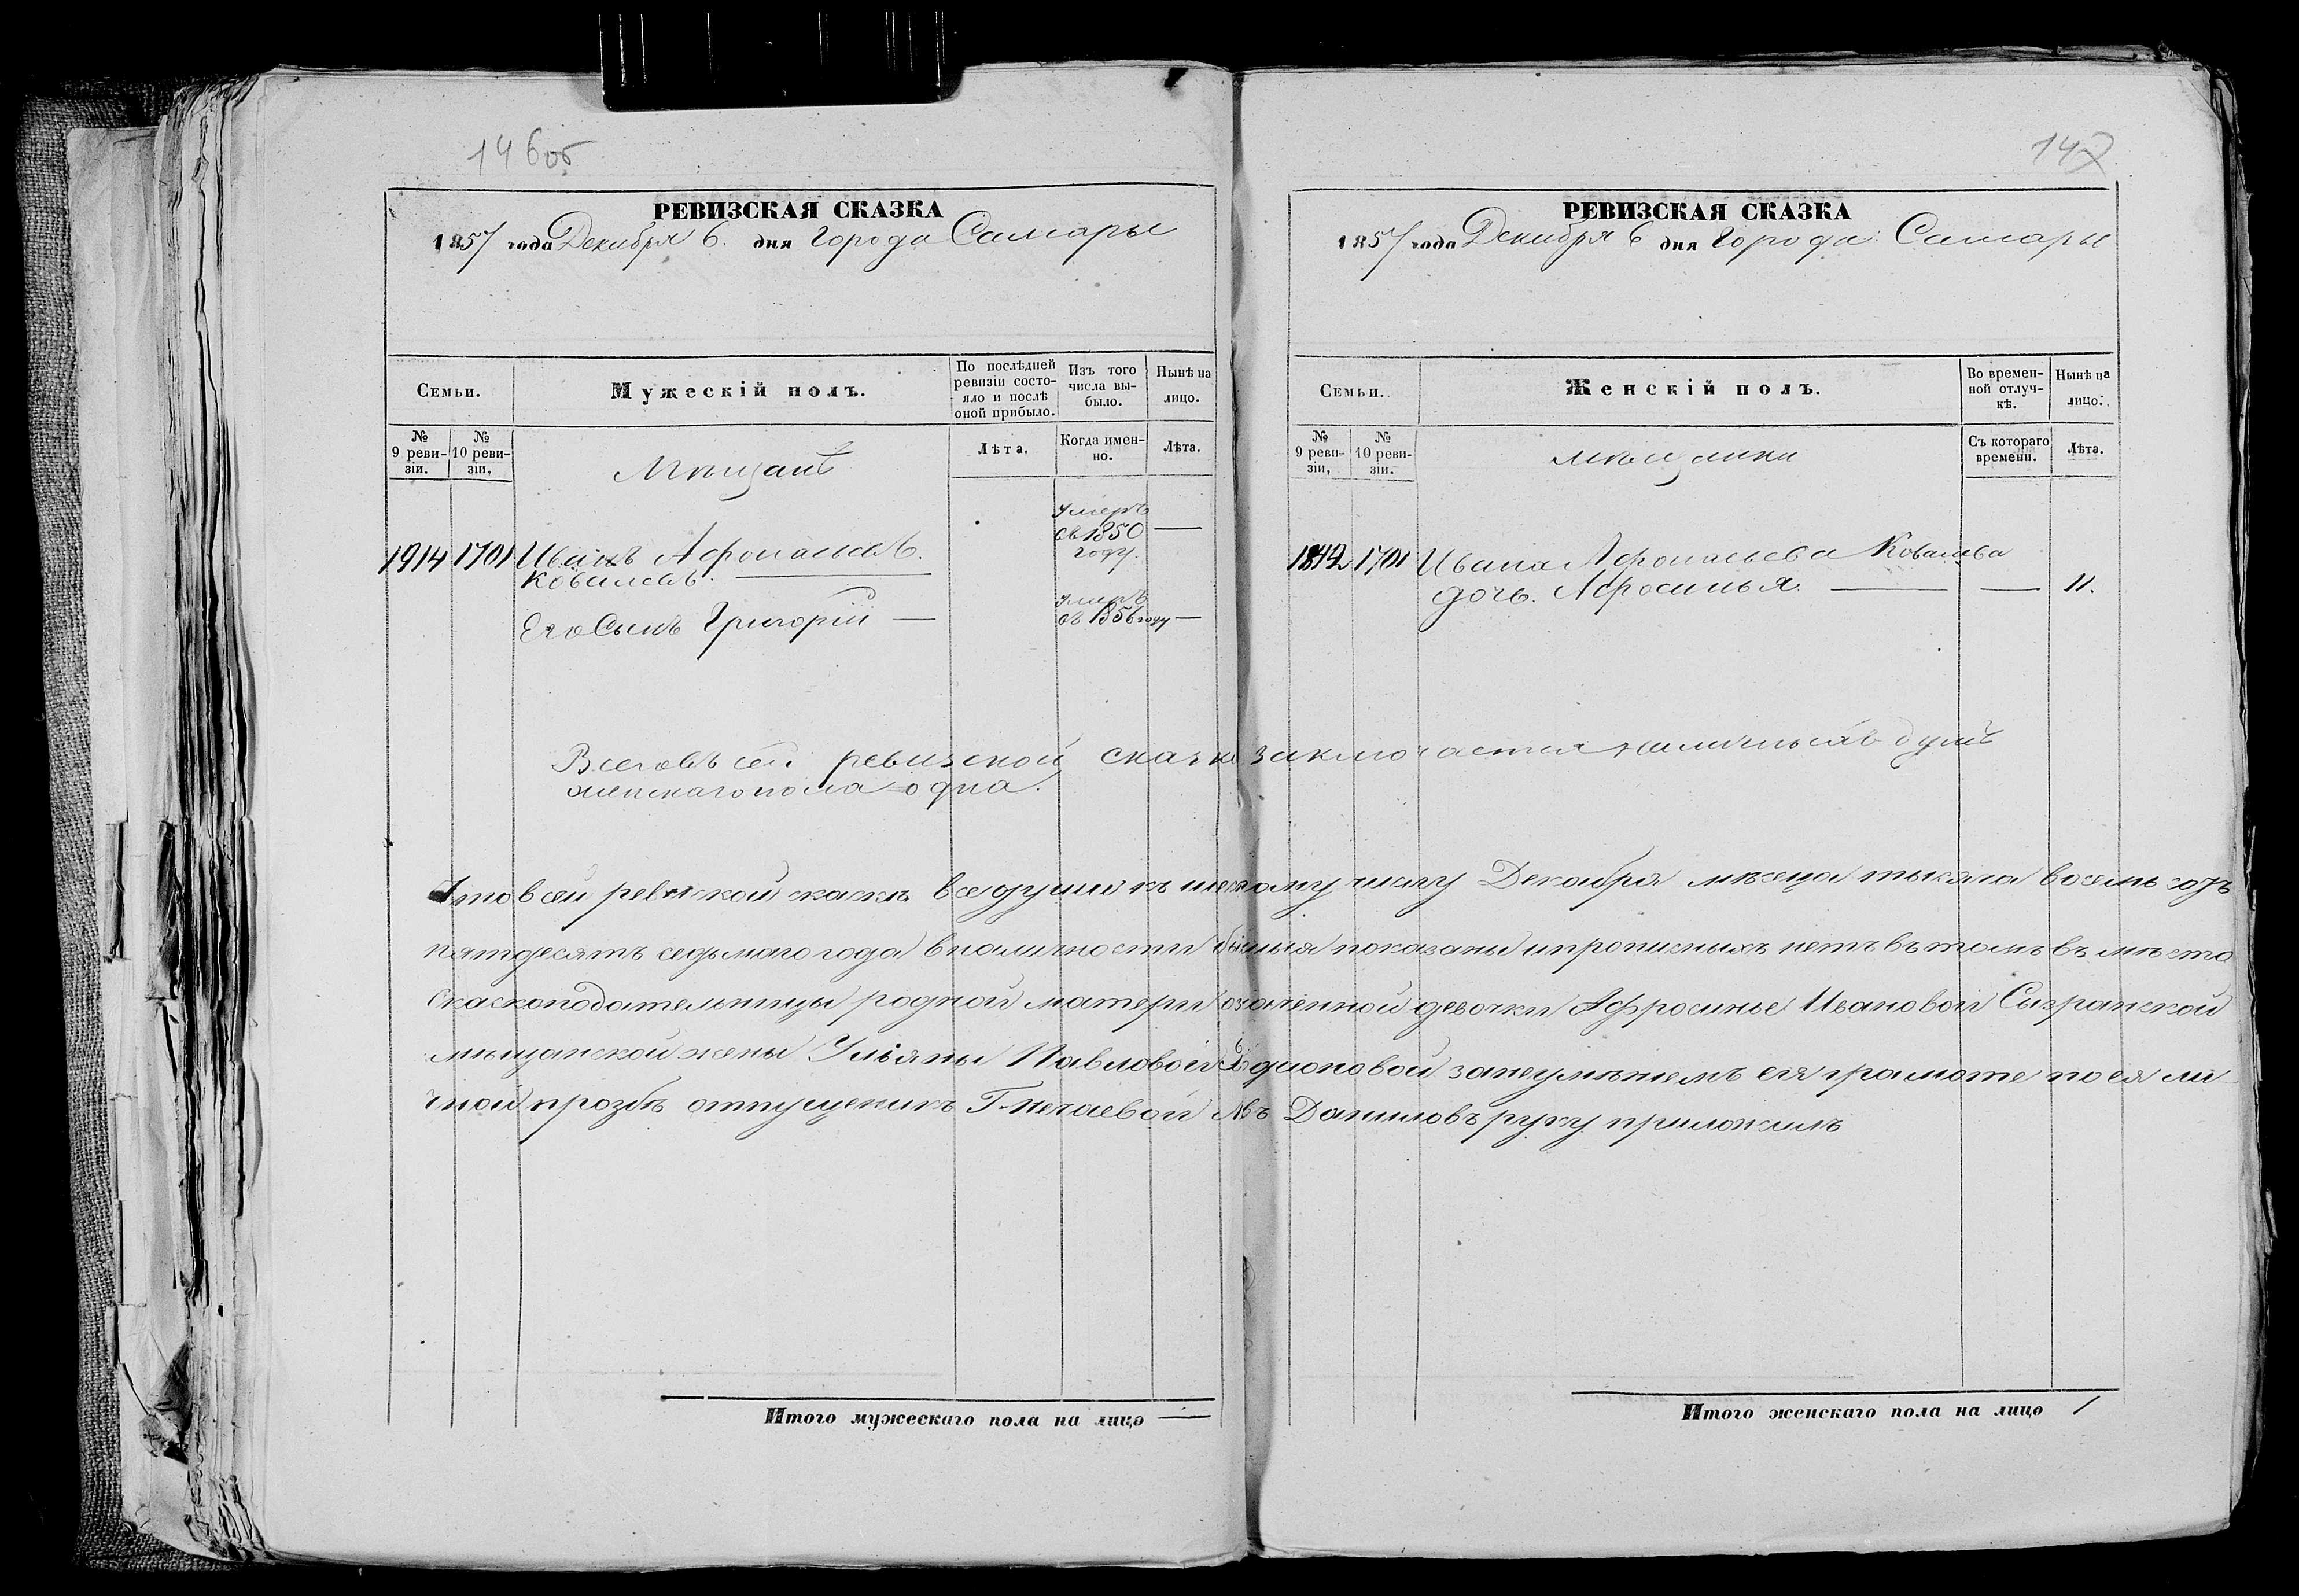 146об
РЕВИЗСКАЯ СКАЗКА
1857 года Декабря 6. дня Города Самары
Семьи.
Мужескій полъ.
По послѣдней ревизіи состояло и послѣ оной прибыло.
Изъ того числа выбыло.
Нынѣ на лицо.
№ 9 ревизіи.
№ 10 ревизіи,
Мѣщанѣ
Лѣта.
Когда именно.
Лѣта.
1914 1701 Иванъ Афонасьевъ.
Ковалевъ.
умеръ въ 1850 году. —
Его Сынъ Григорій —
умеръ въ 1856 году —
Всего въ сей ревизской сказке заключается наличныхъ душъ
женскаго пола одна.
Что в сей ревиской каскѣ все души къ шестому числу Декабря мѣсеца тысяча восемь сотъ
пятдесятъ седьмаго года в наличности бывшыя показаны и прописныхъ нетъ въ томъ въ мѣсто
скаскоподательницы родной матери означенной девочки Афросинье Ивановой Сызранской
мѣщанской жены Ульяны Павловой Родионовой за неумѣнiемъ ея грамоте по ея ли
чной прозбѣ отпущеникъ Г-нечаевой Даниловъ руку приложилъ
Итого мужескаго пола на лицо —
147
РЕВИЗСКАЯ СКАЗКА
1857 года Декабря 6 дня Города Самары
Семьи.
Женскій полъ.
Во временной отлучкѣ.
Нынѣ на лицо.
№ 9 ревизіи,
№ 10 ревизіи.
мѣщанки
Съ котораго времени.
Лѣта.
1701 Ивана Афонасьева Ковалева
дочь. Афросинья. — — 11.
Итого женскаго пола на лицо 1